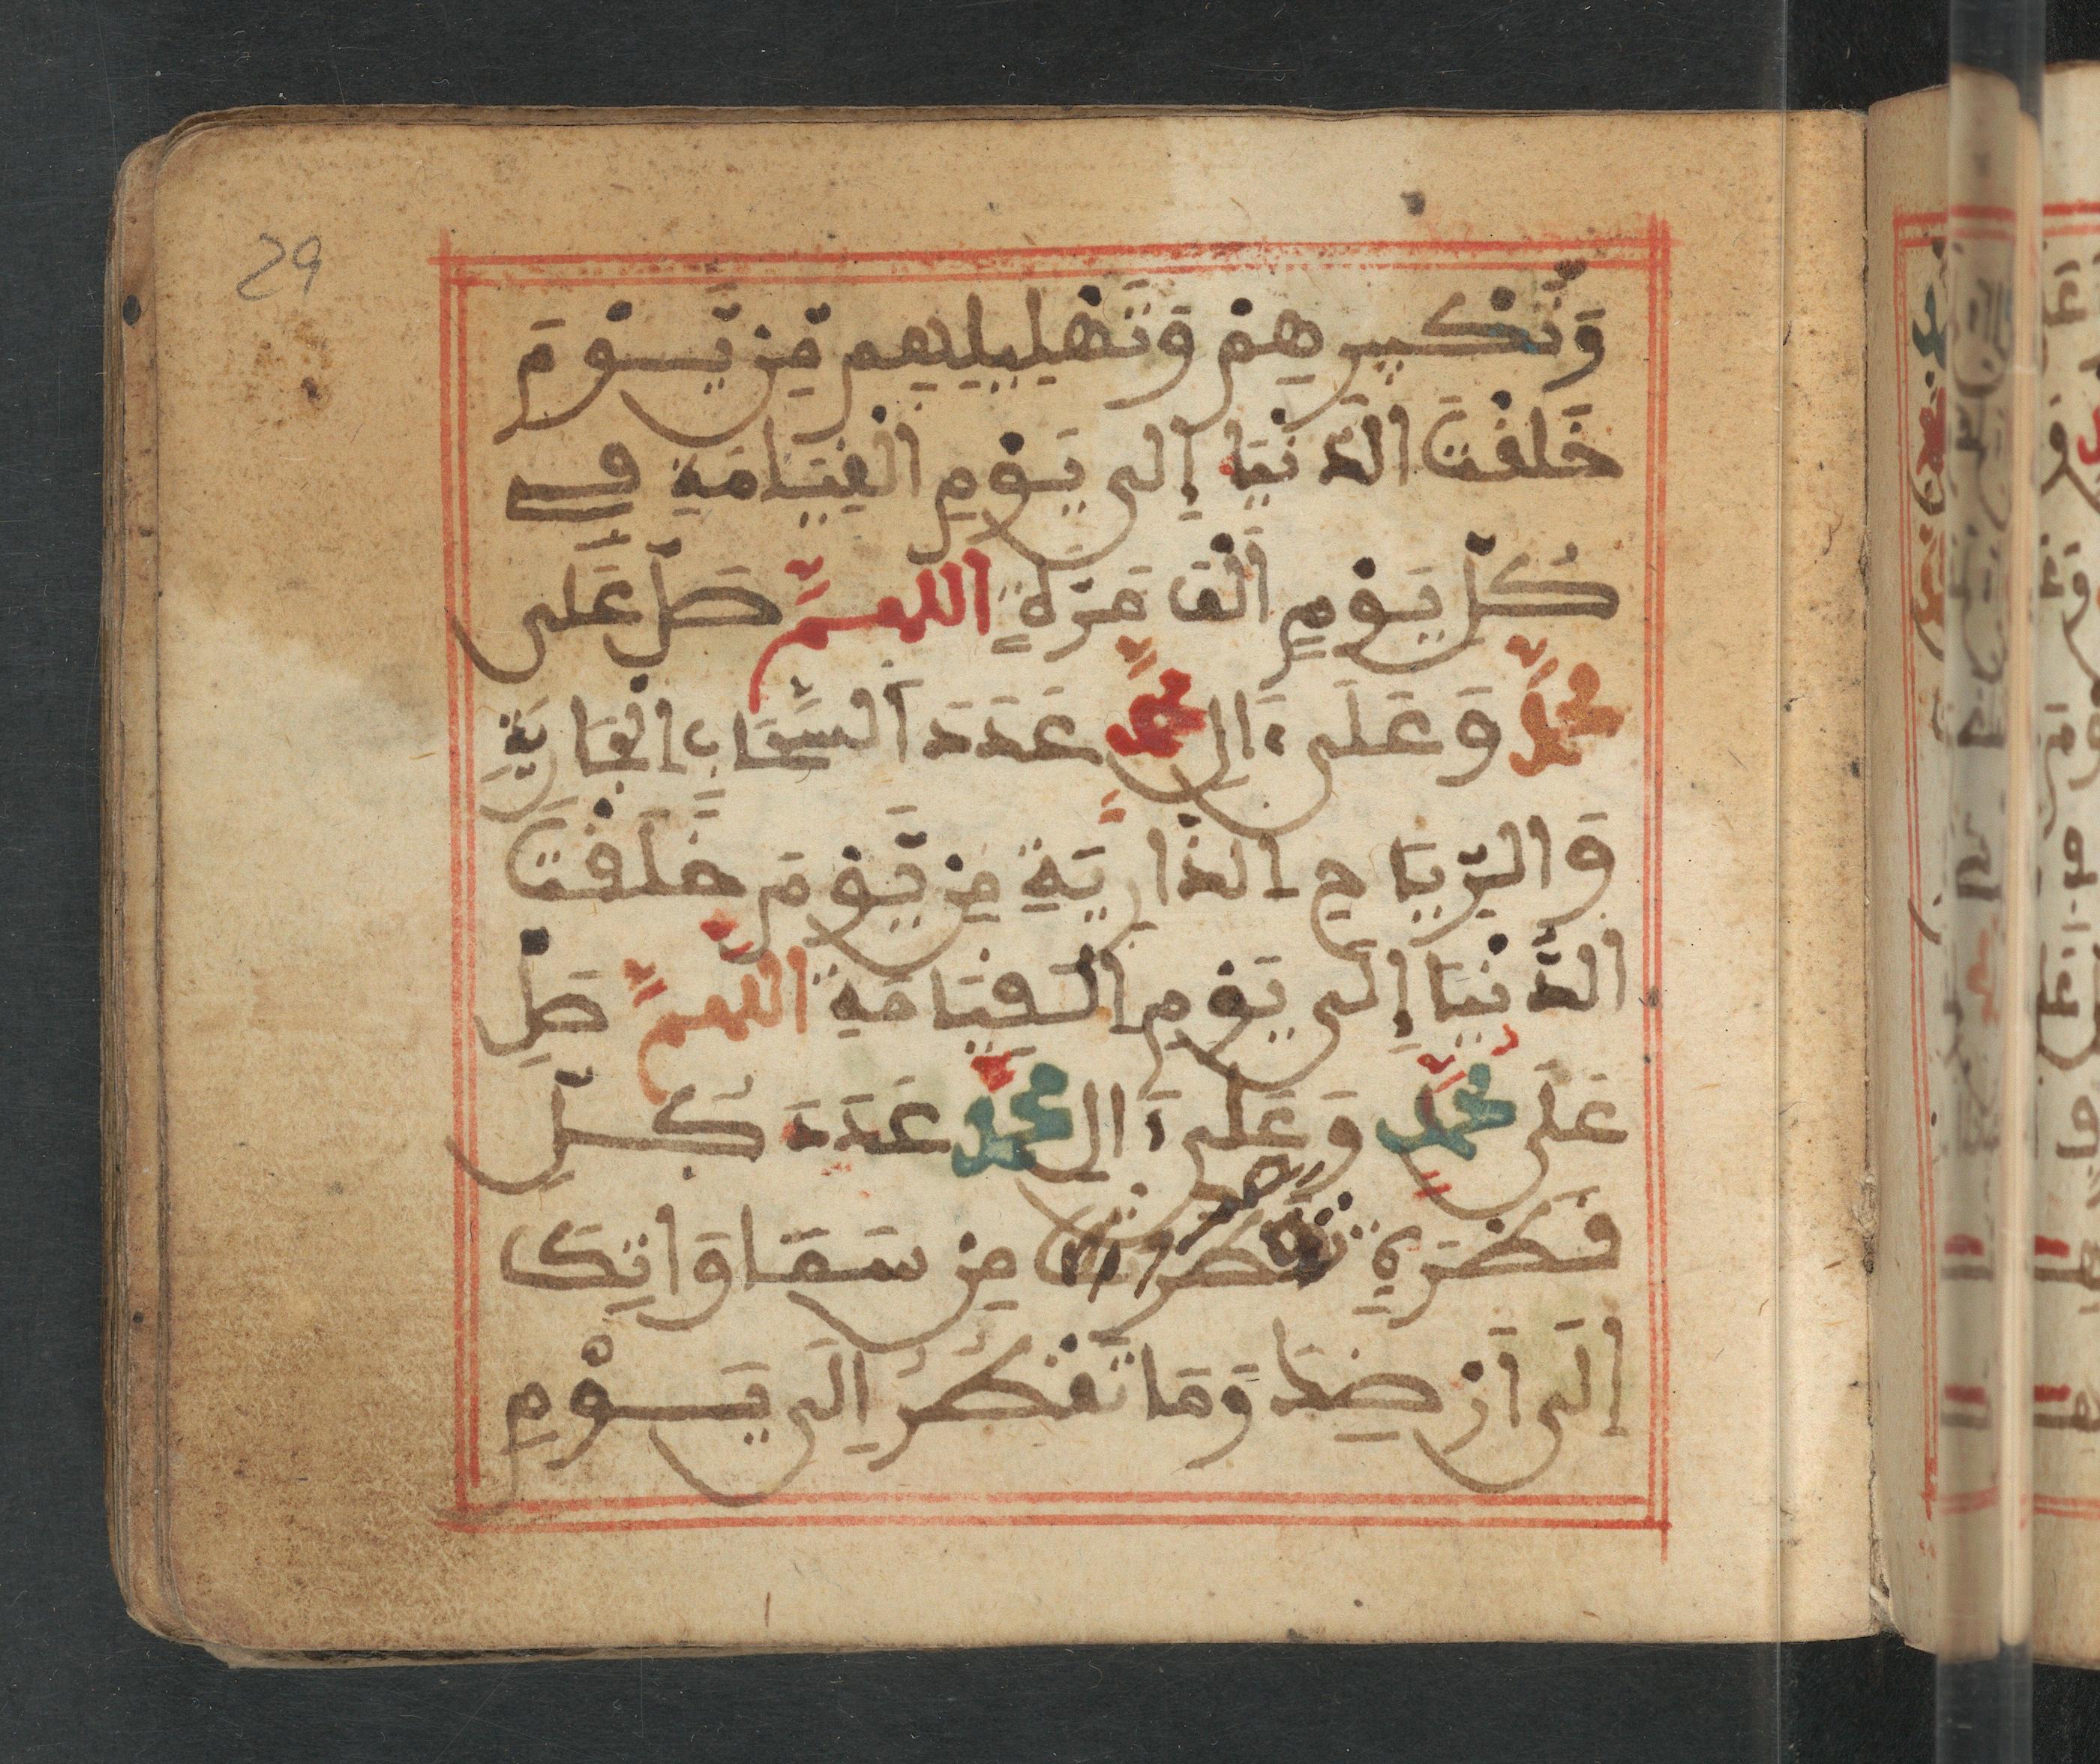 29
وَتَكْبِيرِهِمْ وَتَهْلِيلِهِم مِّن يَّوْمَ
خَلَقْتَ الدُّنْيَا إِلَى يَوْمِ الْقِيَامَةِ فِي
كُلِّ يَوْمٍ أَلْفَ مَرَّةٍ اللهم صَلِّ عَلَى
مُحَمَّدٍ وَعَلَى ءَالِ مُحَمَّدٍ عَدَدَ السَّحَابِ الْجَارِيَةِ
وَالرِّيَاحِ الذَّارِيَةِ مِن يَّوْمَ خَلَقْتَ
الدُّنْيَا إِلَى يَوْمِ الْقِيَامَةِ اللهم صَلِّ
عَلَى مُحَمَّدٍ وَعَلَى ءَالِ مُحَمَّدٍ عَدَدَ كُلِّ
قَطْرَةٍ قَطَرَتْ مِن سَمَاوَاتِكَ
إِلَى أَرْضِكَ وَمَا تَقْطُرُ إِلَى يَوْمِ